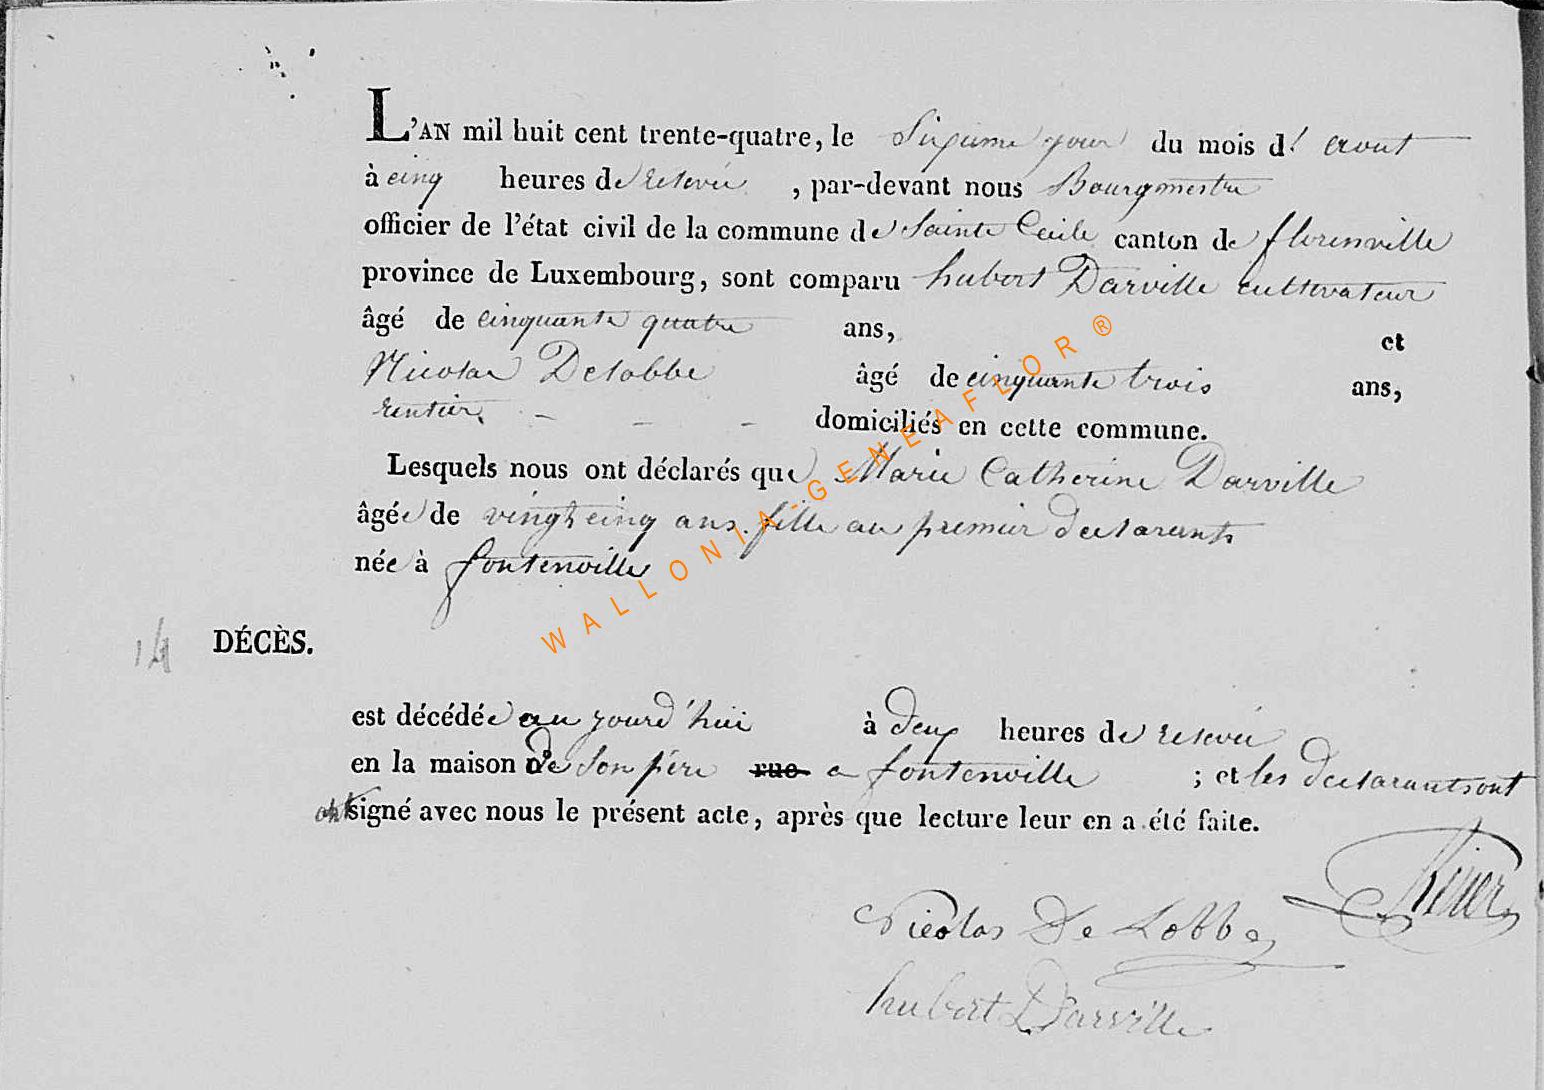 L'AN mil huit cent trente-quatre, le Sixieme jour du mois d' aout
à cinq heures de relevée , par-devant nous Bourgmestre
officier de l'état civil de la commune de Sainte Cecile canton de florenville
province de Luxembourg, sont comparu hubert Darville cultivateur
âgé de cinquante quatre ans, et
Nicolas Delobbe âgé de cinquante trois ans,
rentier, – – – domiciliés en cette commune.
Lesquels nous ont déclarés que Marie Catherine Darville
âgée de vingt cinq ans. fille au premier declarant
née à fontenoille
14 DÉCÈS.
est décédée au jourd'hui à deux heures de relevée
en la maison de son père rue a fontenoille ; et les declarants ont
ont signé avec nous le présent acte, après que lecture leur en a été faite.
Nicolas De Lobbe
hubert Darville
WALLONIA-GENEAFLOR®